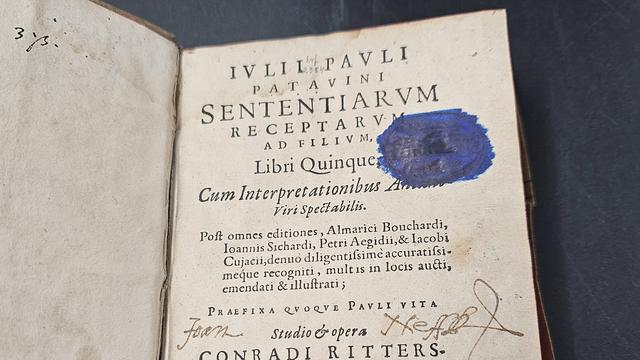 3
IVLII PAVLI
PATAVINI
SENTENTIARVM
RECEPTARVM
AD FILIVM,
Libri Quinque,
Cum Interpretationibus
Viri Spectabilis.
Poſt omnes editiones, Almarici Bouchardi,
Ioannis Sichardi, Petri Aegidii, & Iacobi
Cujacii, denuo diligentiſſimè accuratiſſi-
mèque recogniti, multis in locis aucti,
emendati & illuſtrati;
PRAEFIXA QVOQVE PAVLI VITA
Joan
Studio & opera
CONRADI RITTERS-